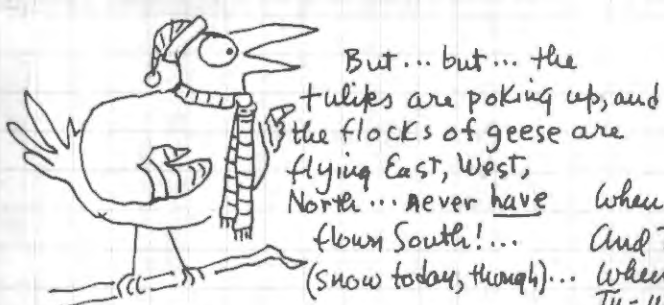 But... but... the
tulips are poking up, and
the flocks of geese are
flying East, West,
North... never have
flown South!...
(snow today, though)...
when
And
when